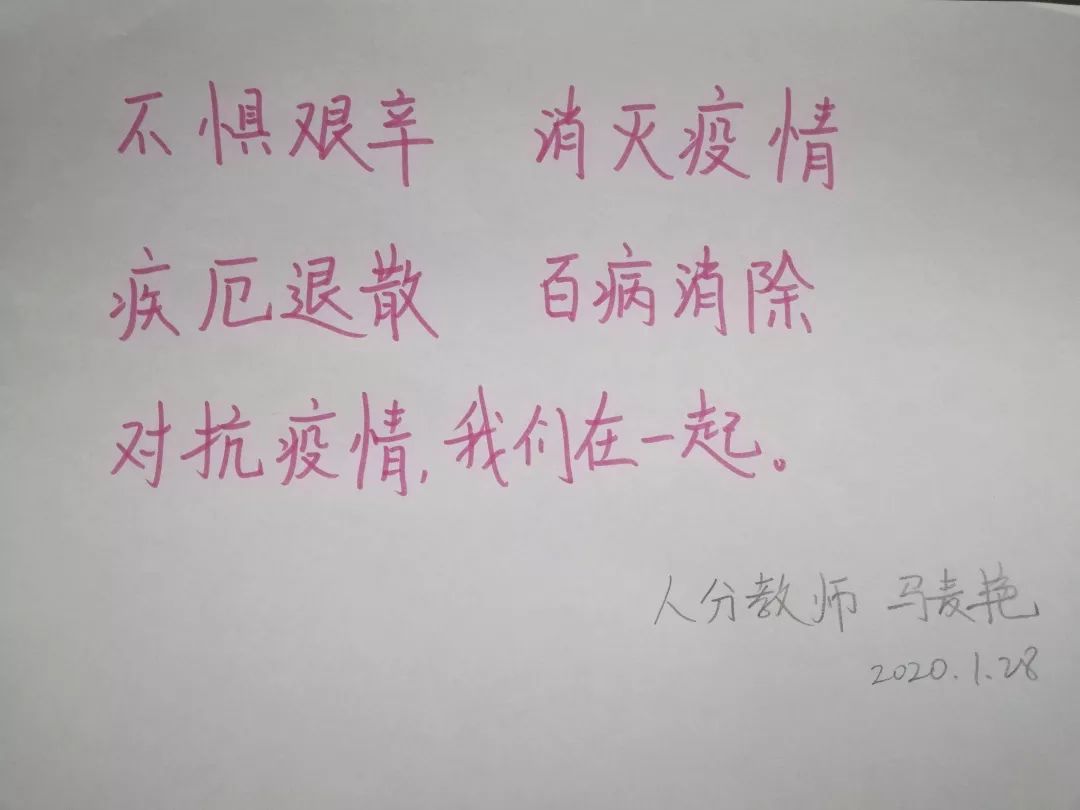 不惧艰辛 消灭疫情
疾厄退散 百病消除
对抗疫情,我们在一起。
人分教师 马麦艳
2020.1.28